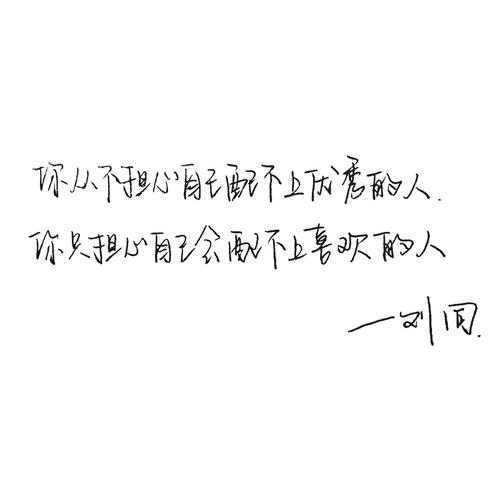 你从不担心自己配不上优秀的人.
你只担心自己会配不上喜欢的人
—刘同.